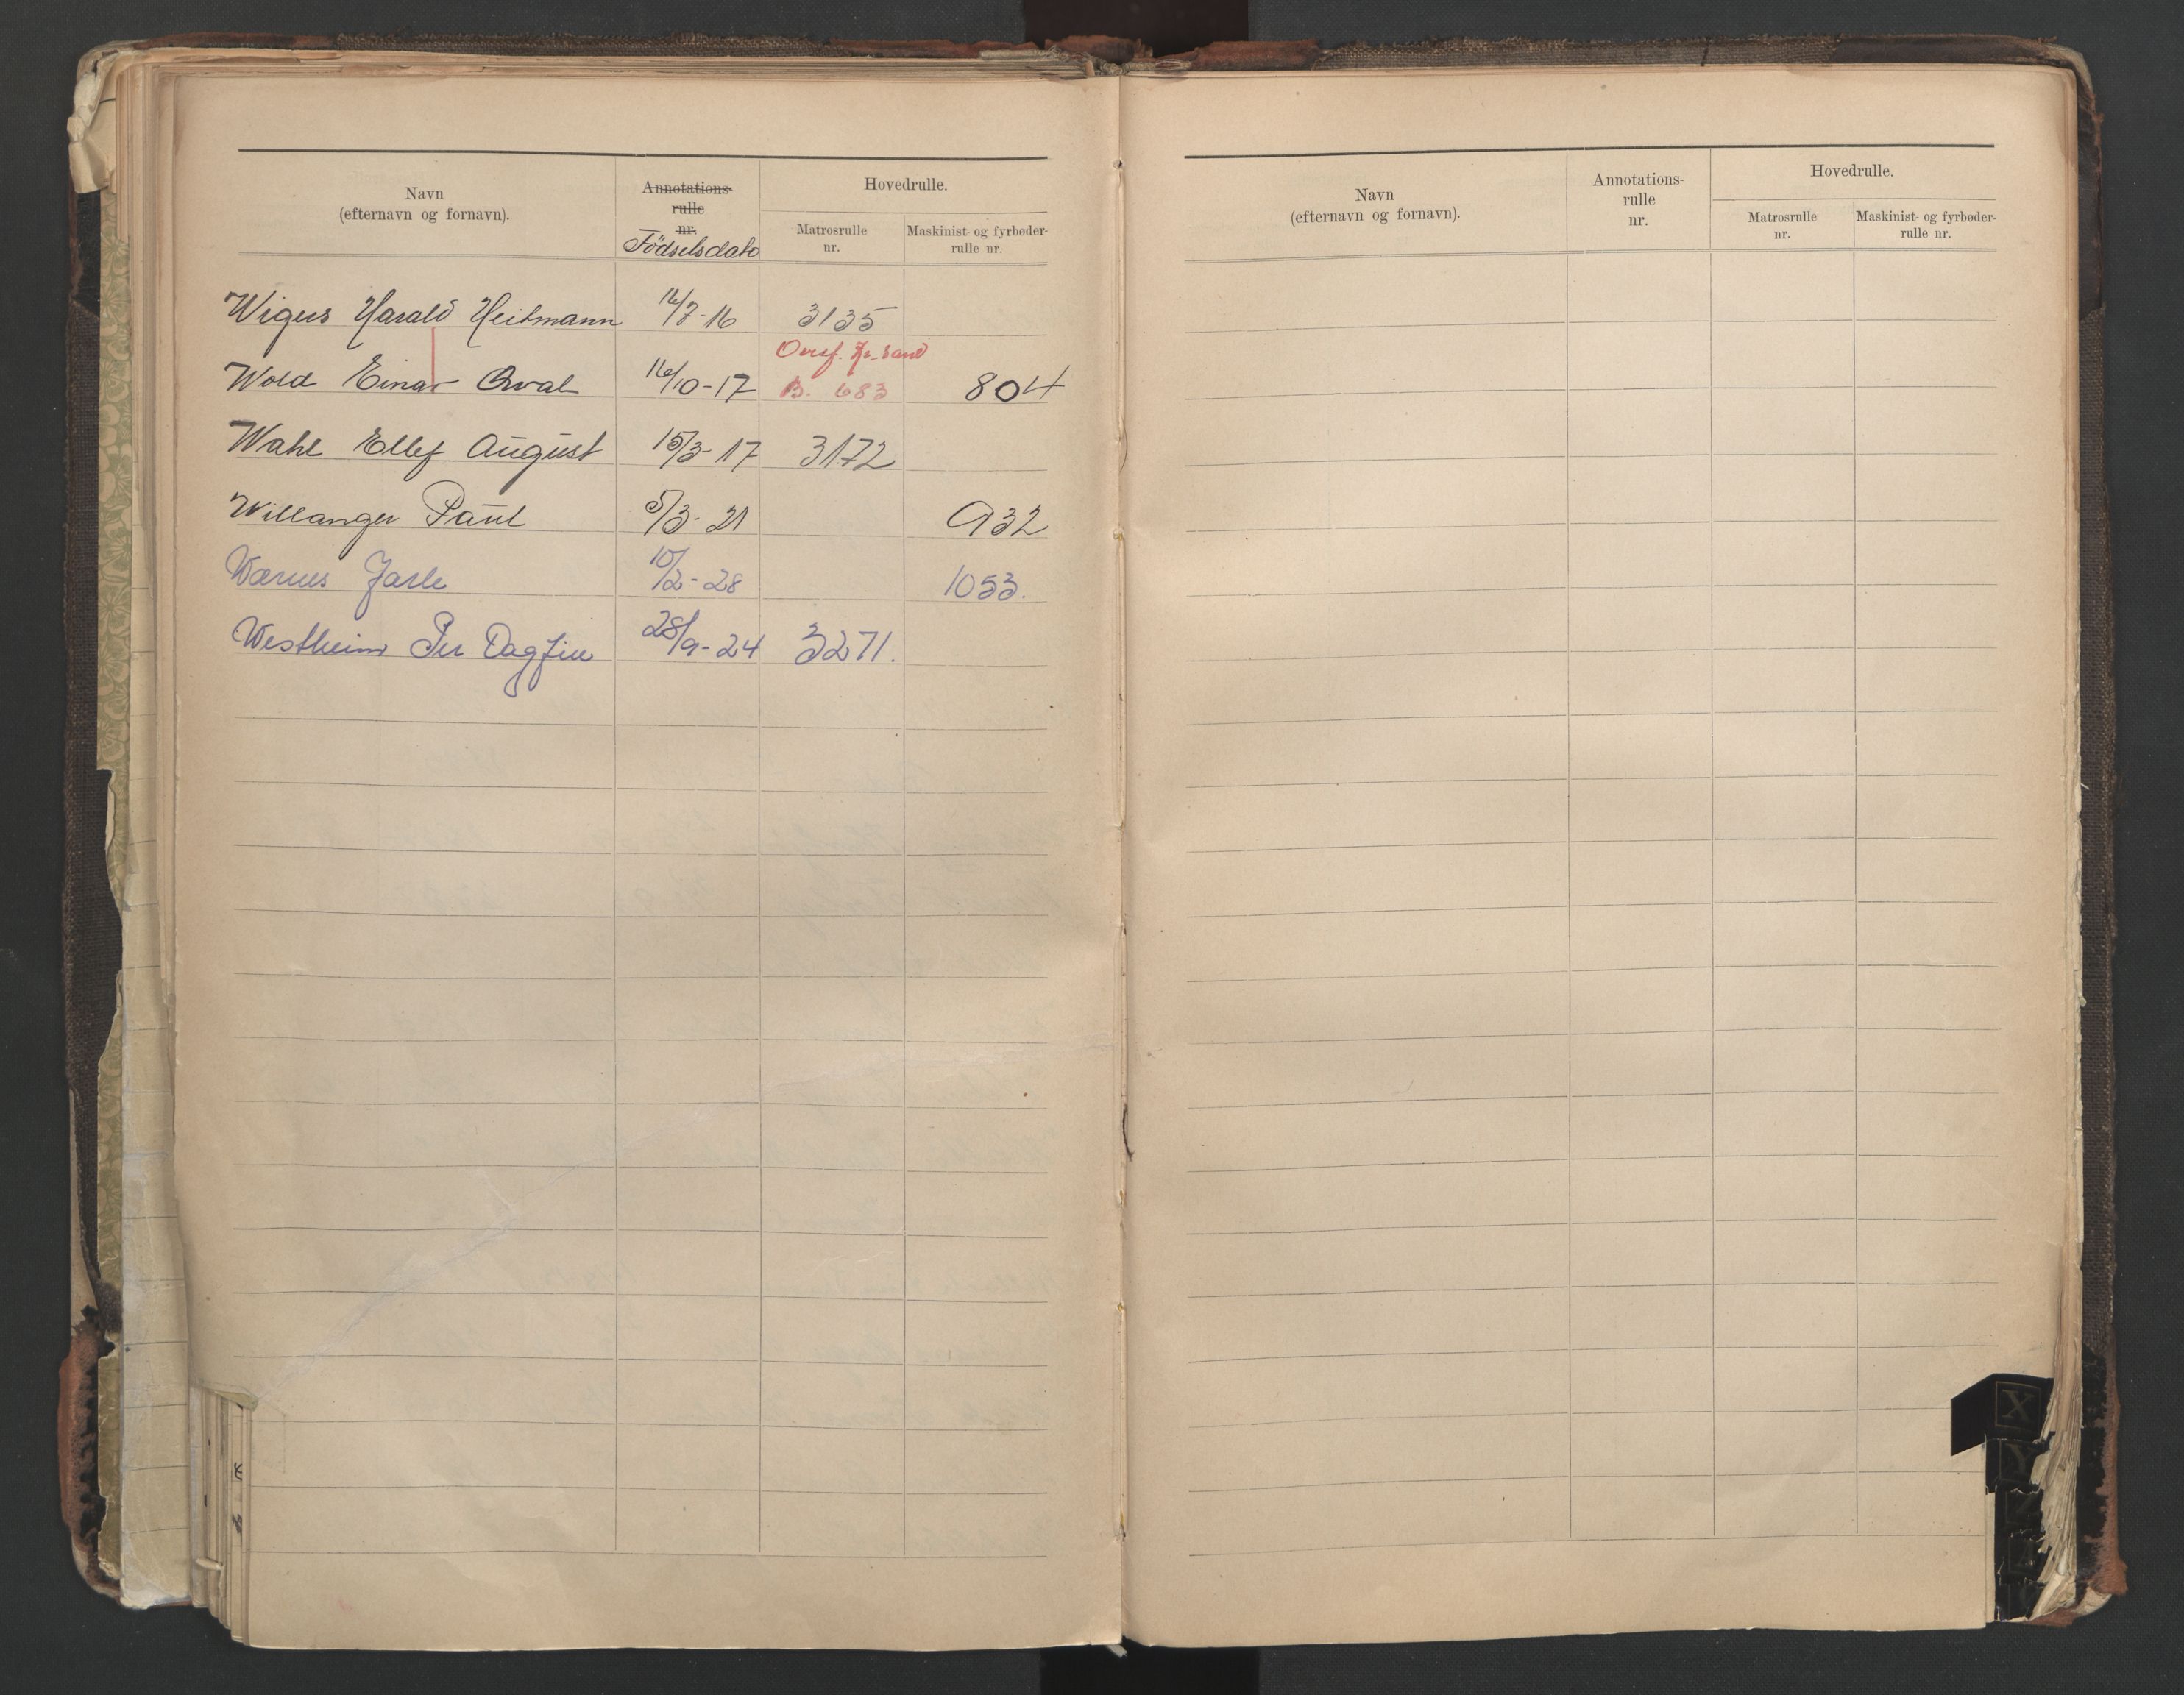 Navn
(efternavn og fornavn).
Annotations-
rulle
nr.
Födselsdato
Hovedrulle.
Matrosrulle
nr.
Maskinist- og fyrbøder-
rulle nr.
Harald Heitmann 16/7-16 3135
Overf. Kr.sand
Wold Einar 16/10-17 B. 683 804
Wahl Ellef August 15/3-17 3172
Willanger Paul 5/3-21 932
Jarle 10/2-28 1053.
Westheim Per Dagfin 28/9-24 3271.
Navn
(efternavn og fornavn).
Annotations-
rulle
nr.
Hovedrulle.
Matrosrulle
nr.
Maskinist- og fyrbøder-
rulle nr.
X
Y